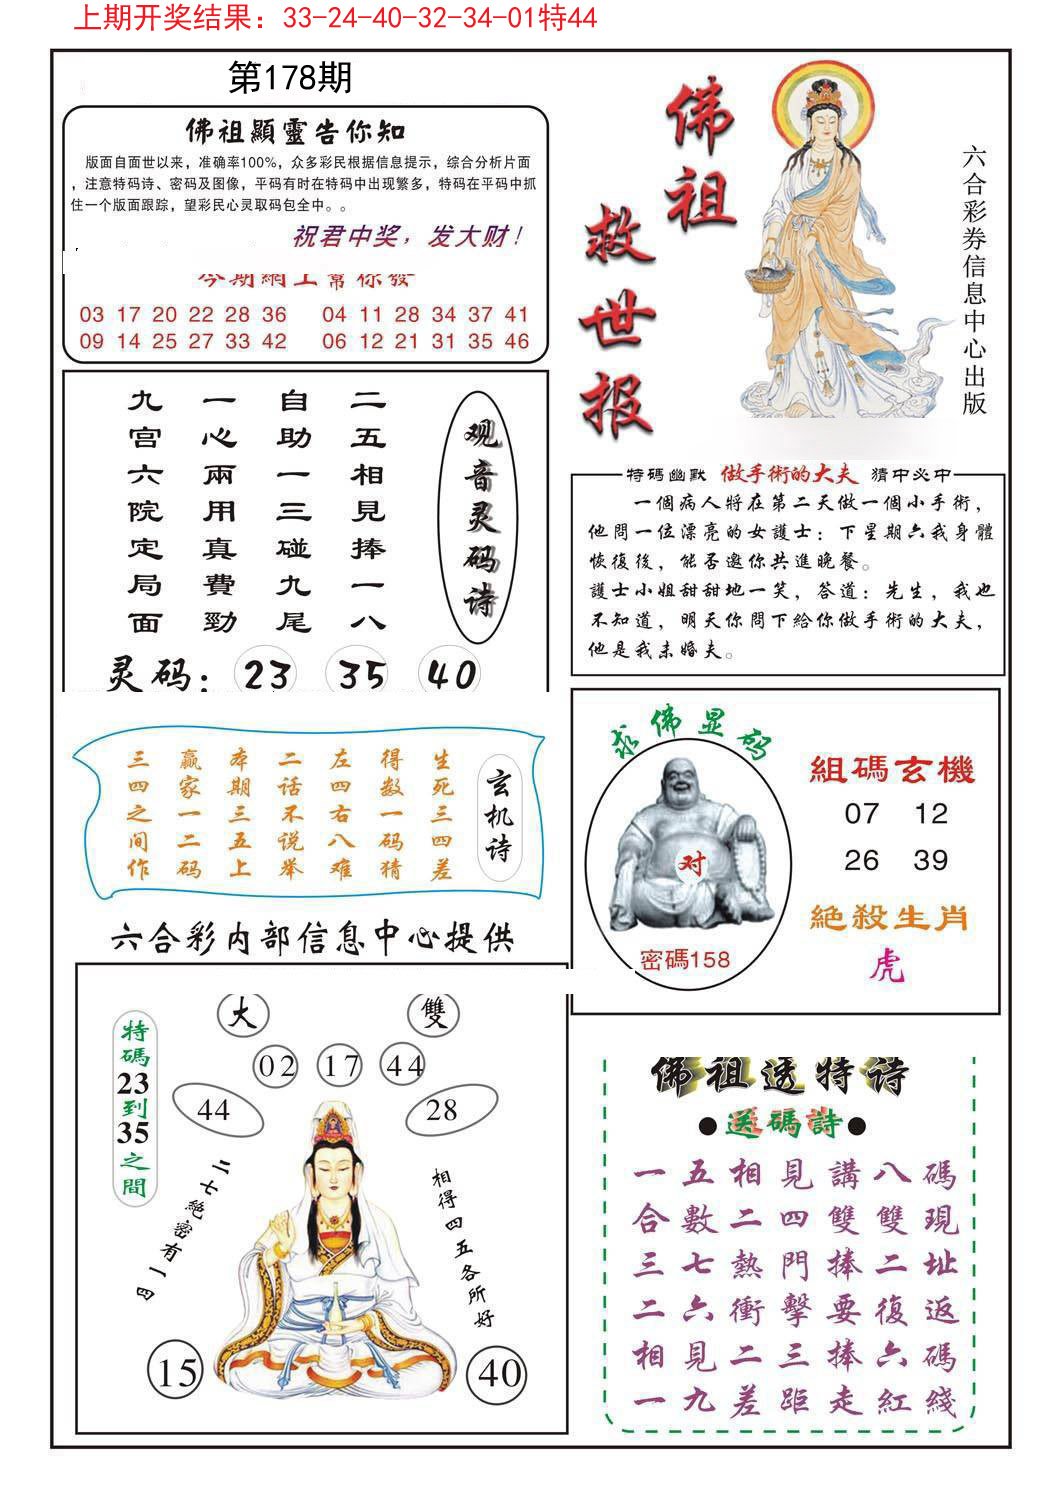 上期开奖结果：33-24-40-32-34-01特44
第178期
佛祖顯靈告你知
版面自面世以来，准确率100%，众多彩民根据信息提示，综合分析片面
，注意特码诗、密码及图像，平码有时在特码中出现繁多，特码在平码中抓
住一个版面跟踪，望彩民心灵取码包全中。。
祝君中奖，发大财！
今期網上幫你發
03 17 20 22 28 36 04 11 28 34 37 41
09 14 25 27 33 42 06 12 21 31 35 46
佛祖
救世报
六合彩券信息中心出版
观音灵码诗
二五相見捧一八
自助一三碰九尾
一心兩用真費勁
九宫六院定局面
灵码：23 35 40
特碼幽默 做手術的大夫 猜中必中
一個病人將在第二天做一個小手術，
他問一位漂亮的女護士：下星期六我身體
恢復後，能否邀你共進晚餐。
護士小姐甜甜地一笑，答道：先生，我也
不知道，明天你問下給你做手術的大夫，
他是我未婚夫。
玄机诗
生死三四差
得数一码猜
左四右八难
二话不说举
本期三五上
赢家一二码
三四之间作
六合彩内部信息中心提供
求佛显码
对
密碼158
組碼玄機
07 12
26 39
絕殺生肖
虎
特碼23到35之間
大 雙
02 17 44
44 28
二七絕密有一四
相得四五各所好
15 40
佛祖透特诗
●送碼詩●
一五相見講八碼
合數二四雙雙現
三七熱門捧二址
二六衝擊要復返
相見二三捧六碼
一九差距走紅綫